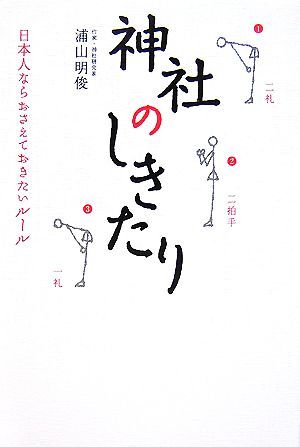 神社
のしきたり
作家・神社研究家
浦山明俊
日本人ならおさえておきたいルール
1
二礼
2
二拍手
3
一礼